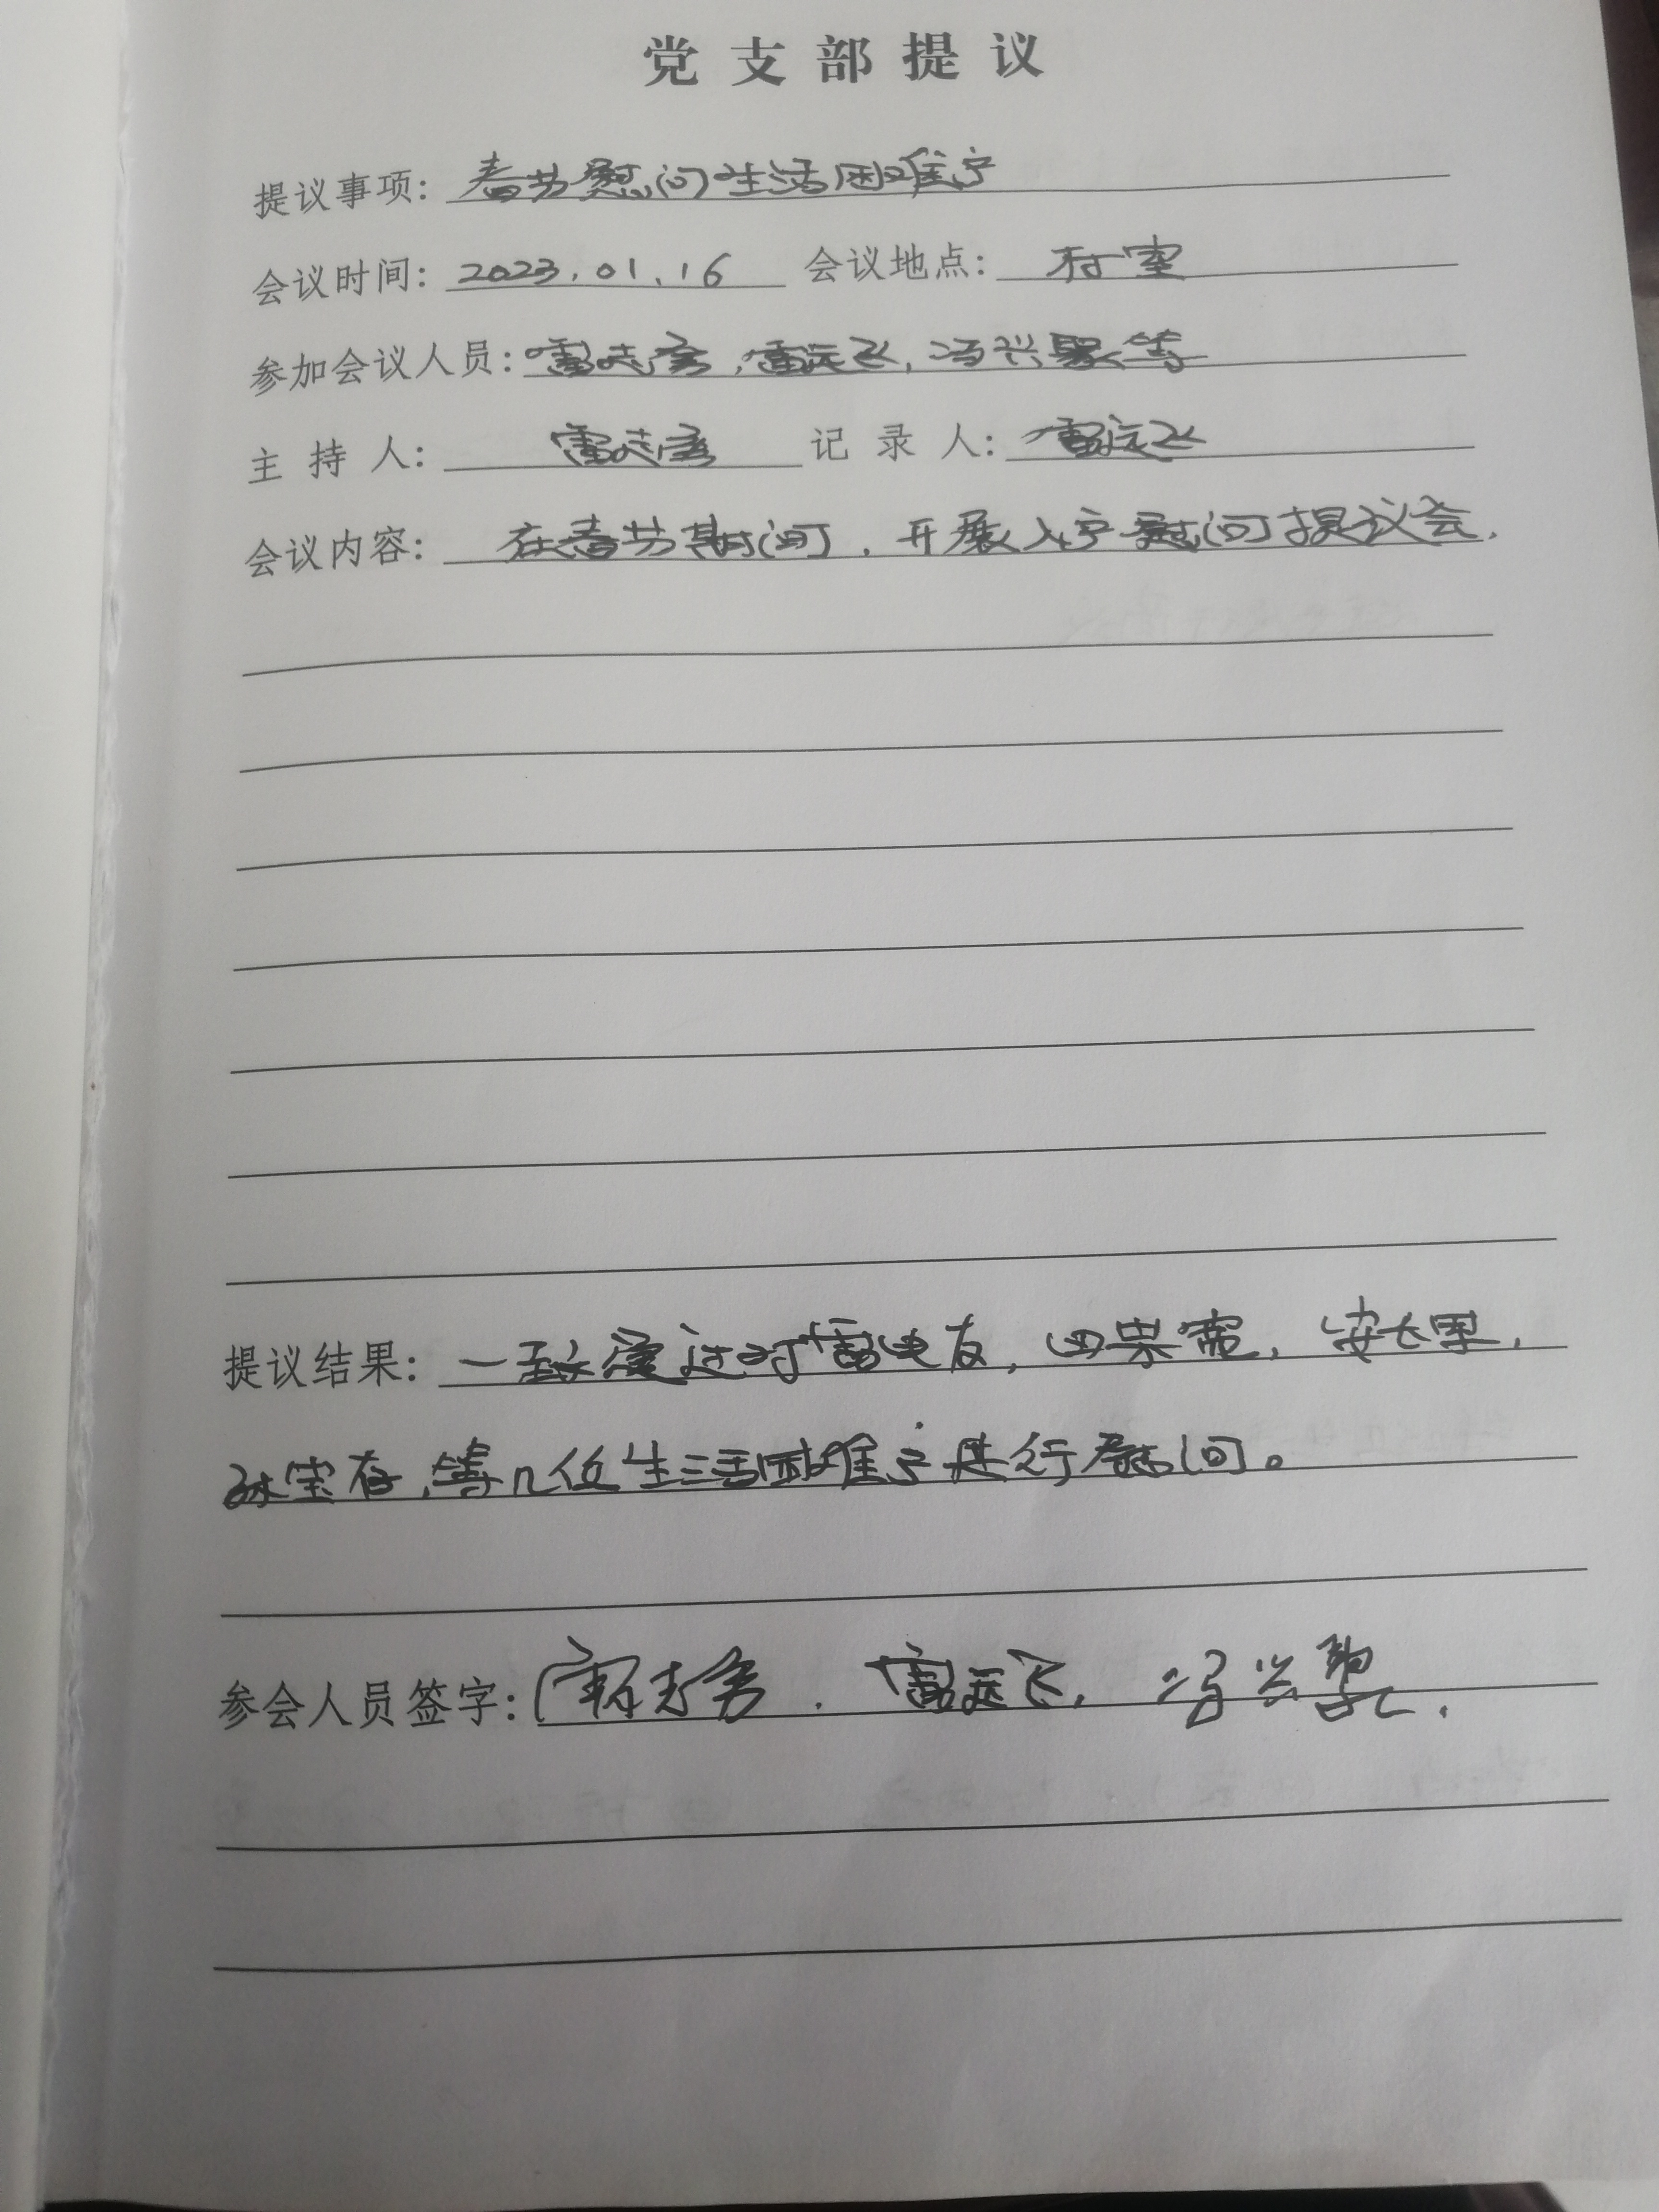 党支部提议
提议事项: 春节慰问生活困难户
会议时间: 2023.01.16 会议地点: 村室
参加会议人员: 雷志彦,雷远飞,冯兴聚等
主持人: 雷志彦 记录人: 雷远飞
会议内容: 在春节期间,开展入户慰问提议会.
提议结果: 一致通过对雷史友,田荣宽,安长里,
孙宝存,等几位生活困难户进行慰问。
参会人员签字: 雷志彦.雷远飞,冯兴聚.